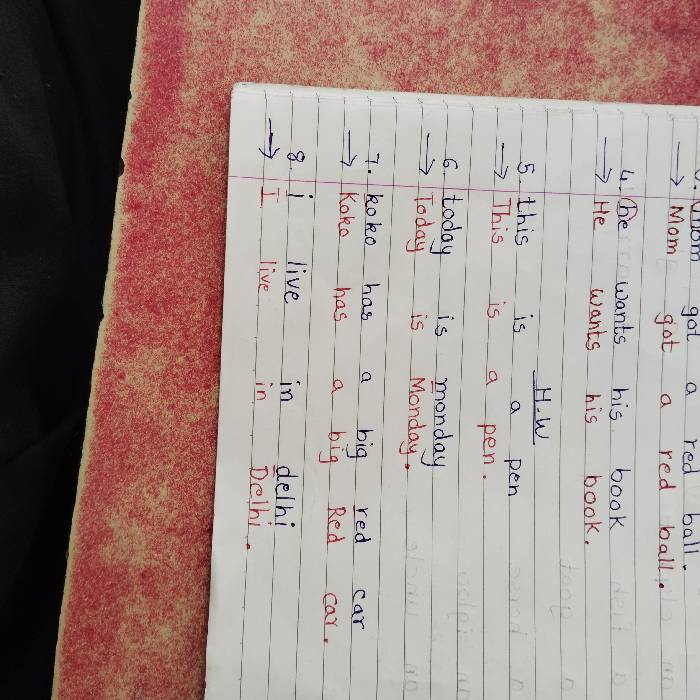 mom got a red ball.
→ Mom got a red ball.
4. he wants his book
→ He wants his book.
H.W
5. this is a pen
→ This is a pen.
6. today is monday
→ Today is Monday.
7. koko has a big red car
→ Koko has a big Red car.
8. i live in delhi
→ I live in Delhi.